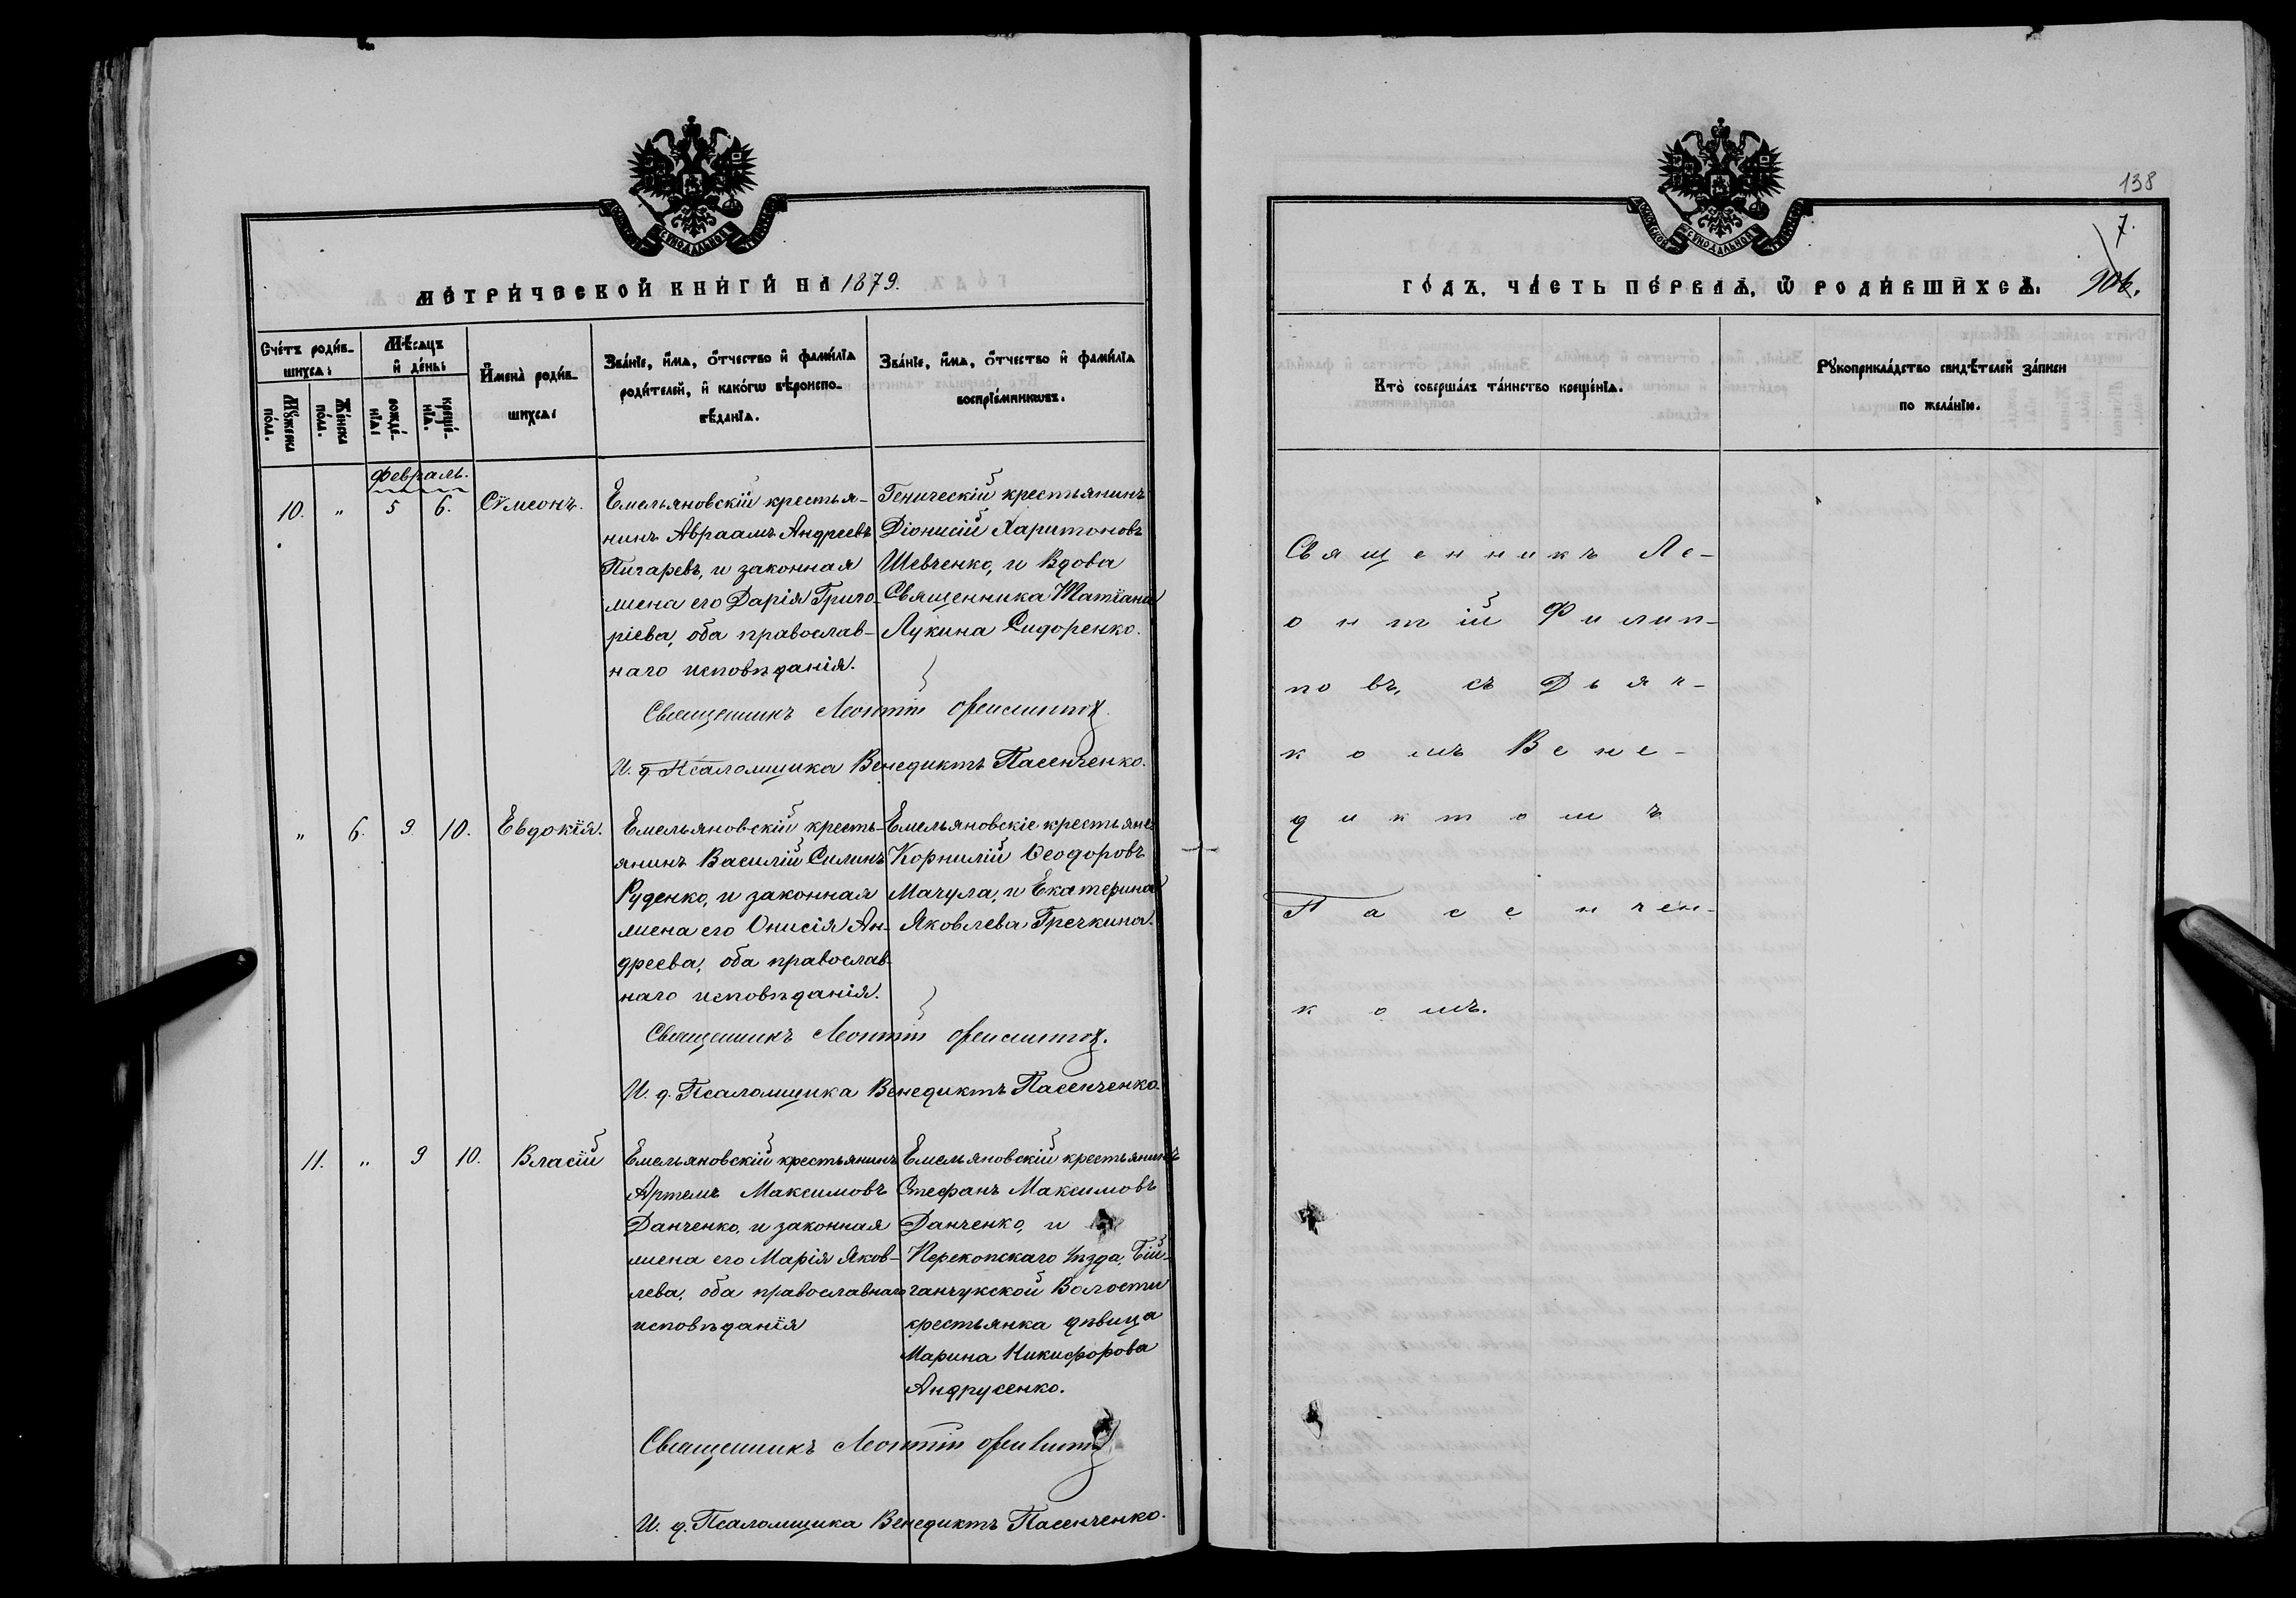 МЕТРИЧЕСКОЙ КНИГИ НА 1879.
Счетъ родив-
шихся:
Мѣсяцъ
и день:
Имена родив-
шихся:
Званіе, имя, отчество и фамилія
родителей, и какого вѣроиспо-
вѣданія.
Званіе, имя, отчество и фамилія
воспріемниковъ.
Мужеска
пола.
Женска
пола.
рожде-
нія:
креще-
нія.
Февраль.
10. " 5 6. Сѵмеонъ.
Емельяновскій крестья-
нинъ Авраамъ Андреевъ
Пигаревъ, и законная
жена его Дарія Григо-
ріева, оба православ-
наго исповѣданія.
Геническій крестьянинъ
Діонисій Харитоновъ
Шевченко, и Вдова
Священника Татіана
Лукина Сидоренко.
Священникъ Леонтій
И. д. Псаломщика Венедиктъ Пасенченко.
" 6. 9. 10. Евдокія.
Емельяновскій кресть-
янинъ Василій Силинъ
Руденко, и законная
жена его Онисія Ан-
дреева, оба православ-
наго исповѣданія.
Емельяновскіе крестьяне
Корнилій Ѳеодоровъ
Мачула, и Екатерина
Яковлева Гречкина.
Священникъ Леонтій
И. д. Псаломщика Венедиктъ Пасенченко.
11. " 9 10. Власій
Емельяновскій крестьянинъ
Артемъ Максимовъ
Данченко, и законная
жена его Марія Яков-
лева, оба православнаго
исповѣданія
Емельяновскій крестьянинъ
Стефанъ Максимовъ
Данченко, и
Перекопскаго уѣзда, Бій-
ганчукской Волости
крестьянка дѣвица
Марина Никифорова
Андрусенко.
Священникъ Леонтій
И. д. Псаломщика Венедиктъ Пасенченко.
138
7.
ГОДЪ, ЧАСТЬ ПЕРВАЯ, Ѿ РОДИВШИХСЯ.
Кто совершалъ таинство крещенія.
Рукоприкладство свидѣтелей записи
по желанію.
Священникъ Ле-
онтій Филип-
повъ, съ Дьяч-
комъ Вене-
диктомъ
Пасенчен-
комъ.